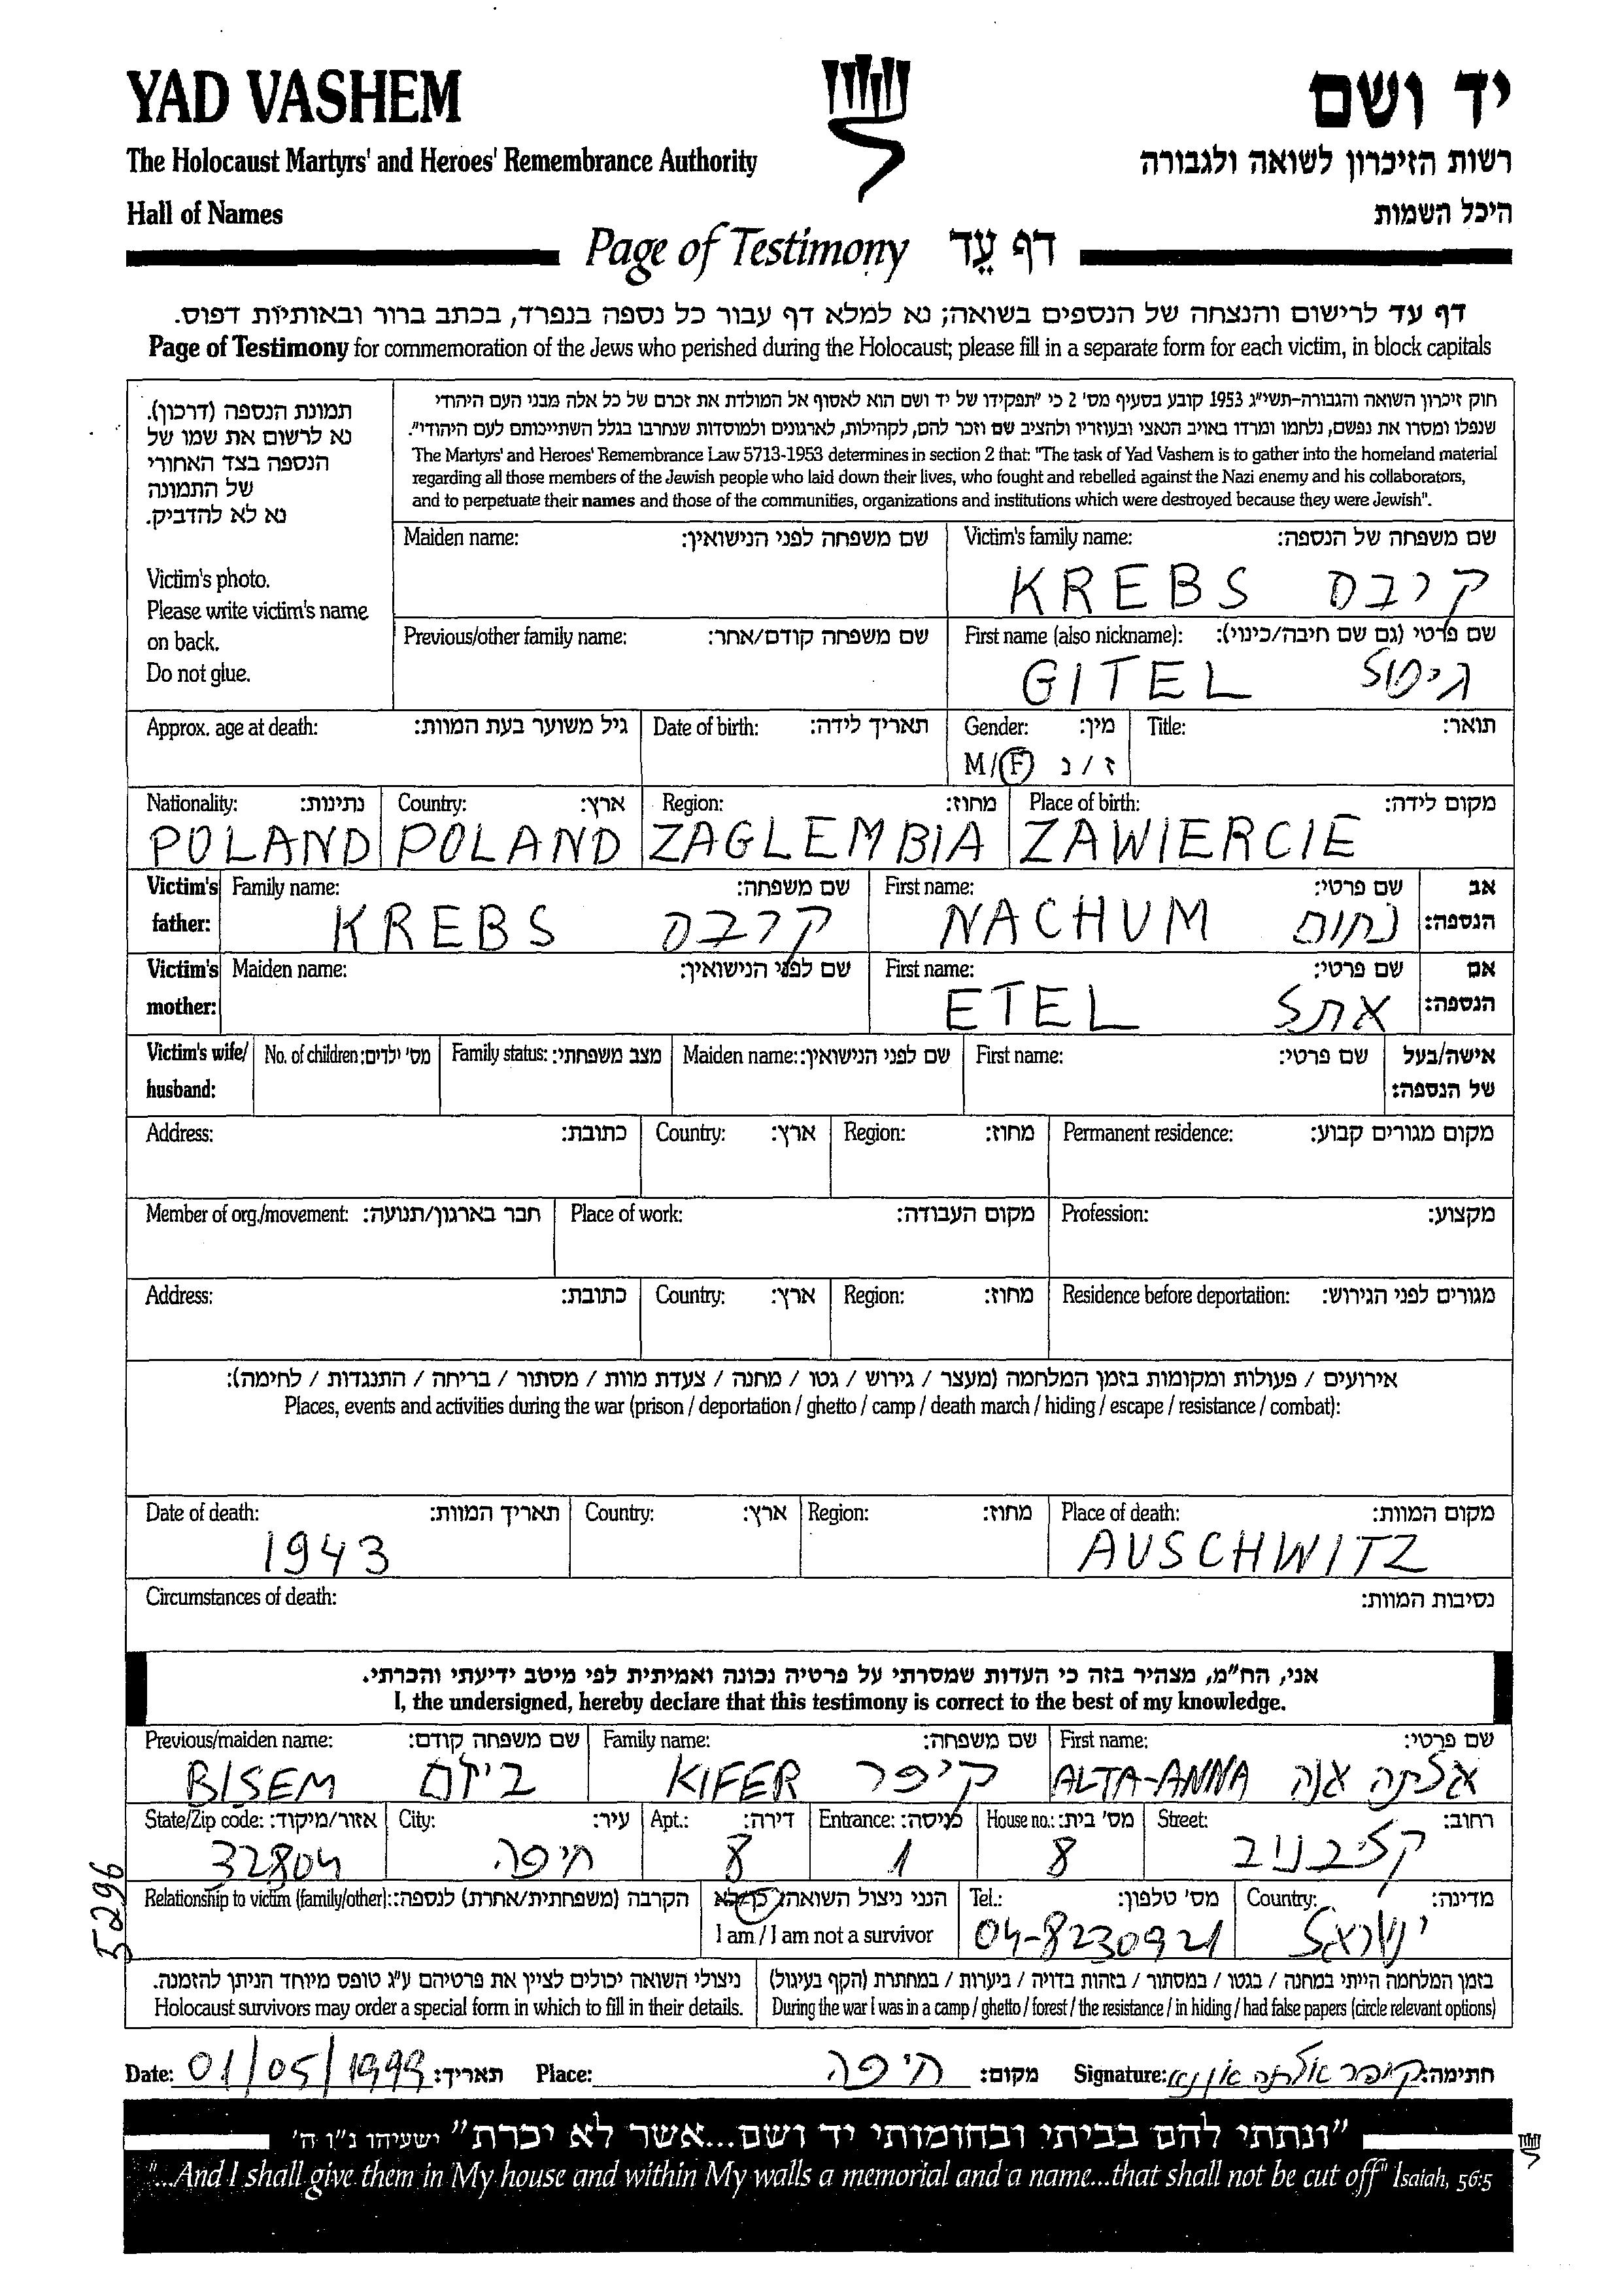 YAD VASHEM
יד ושם
The Holocaust Martyrs' and Heroes' Remembrance Authority
רשות הזיכרון לשואה ולגבורה
Hall of Names
היכל השמות
Page of Testimony דף עֵד
דף עד לרישום והנצחה של הנספים בשואה; נא למלא דף עבור כל נספה בנפרד, בכתב ברור ובאותיות דפוס.
Page of Testimony for commemoration of the Jews who perished during the Holocaust; please fill in a separate form for each victim, in block capitals
תמונת הנספה (דרכון).
נא לרשום את שמו של
הנספה בצד האחורי
של התמונה
נא לא להדביק.
Victim's photo.
Please write victim's name
on back.
Do not glue.
חוק זיכרון השואה והגבורה-תשי"ג 1953 קובע בסעיף מס' 2 כי "תפקידו של יד ושם הוא לאסוף אל המולדת את זכרם של כל אלה מבני העם היהודי
שנפלו ומסרו את נפשם, נלחמו ומרדו באויב הנאצי ובעוזריו ולהציב שם וזכר להם, לקהילות, לארגונים ולמוסדות שנחרבו בגלל השתייכותם לעם היהודי".
The Martyrs' and Heroes' Remembrance Law 5713-1953 determines in section 2 that: "The task of Yad Vashem is to gather into the homeland material
regarding all those members of the Jewish people who laid down their lives, who fought and rebelled against the Nazi enemy and his collaborators,
and to perpetuate their names and those of the communities, organizations and institutions which were destroyed because they were Jewish".
Maiden name: שם משפחה לפני הנישואין:
Victim's family name: שם משפחה של הנספה:
KREBS קרבס
Previous/other family name: שם משפחה קודם/אחר:
First name (also nickname): שם פרטי (גם שם חיבה/כינוי):
GITEL גיטל
Approx. age at death: גיל משוער בעת המוות:
Date of birth: תאריך לידה:
Gender: מין:
M/F ז/נ
Title: תואר:
Nationality: נתינות: Country: ארץ: Region: מחוז: Place of birth: מקום לידה:
POLAND POLAND ZAGLEMBIA ZAWIERCIE
Victim's father: Family name: שם משפחה: First name: שם פרטי: אב הנספה:
KREBS קרבס NACHUM נחום
Victim's mother: Maiden name: שם לפני הנישואין: First name: שם פרטי: אם הנספה:
ETEL אתל
Victim's wife/ husband: No. of children: מס' ילדים: Family status: מצב משפחתי: Maiden name: שם לפני הנישואין: First name: שם פרטי: אישה/בעל של הנספה:
Address: כתובת: Country: ארץ: Region: מחוז: Permanent residence: מקום מגורים קבוע:
Member of org./movement: חבר בארגון/תנועה: Place of work: מקום העבודה: Profession: מקצוע:
Address: כתובת: Country: ארץ: Region: מחוז: Residence before deportation: מגורים לפני הגירוש:
אירועים / פעולות ומקומות בזמן המלחמה (מעצר / גירוש / גטו / מחנה / צעדת מוות / מסתור / בריחה / התנגדות / לחימה):
Places, events and activities during the war (prison / deportation / ghetto / camp / death march / hiding / escape / resistance / combat):
Date of death: תאריך המוות: Country: ארץ: Region: מחוז: Place of death: מקום המוות:
1943 AUSCHWITZ
Circumstances of death: נסיבות המוות:
אני, הח"מ, מצהיר בזה כי העדות שמסרתי על פרטיה נכונה ואמיתית לפי מיטב ידיעתי והכרתי.
I, the undersigned, hereby declare that this testimony is correct to the best of my knowledge.
Previous/maiden name: שם משפחה קודם: Family name: שם משפחה: First name: שם פרטי:
BISEM ביזם KIFER קיפר ALTA-ANNA אלתה אנה
State/Zip code: אזור/מיקוד: City: עיר: Apt.: דירה: Entrance: כניסה: House no.: מס' בית: Street: רחוב:
32804 חיפה 8 1 8 קליבנוב
5296
Relationship to victim (family/other): הקרבה (משפחתית/אחרת) לנספה: הנני ניצול השואה: כן/לא
I am / I am not a survivor
Tel.: מס' טלפון: Country: מדינה:
04-8230921 ישראל
ניצולי השואה יכולים לציין את פרטיהם ע"ג טופס מיוחד הניתן להזמנה.
Holocaust survivors may order a special form in which to fill in their details.
בזמן המלחמה הייתי במחנה / בגטו / במסתור / בזהות בדויה / ביערות / במחתרת (הקף בעיגול)
During the war I was in a camp / ghetto / forest / the resistance / in hiding / had false papers (circle relevant options)
Date: 01/05/1999 תאריך: Place: חיפה מקום: Signature: קיפר אלתה אנא חתימה:
"ונתתי להם בביתי ובחומותי יד ושם...אשר לא יכרת" ישעיהו נ"ו ה'
"...And I shall give them in My house and within My walls a memorial and a name...that shall not be cut off" Isaiah, 56:5